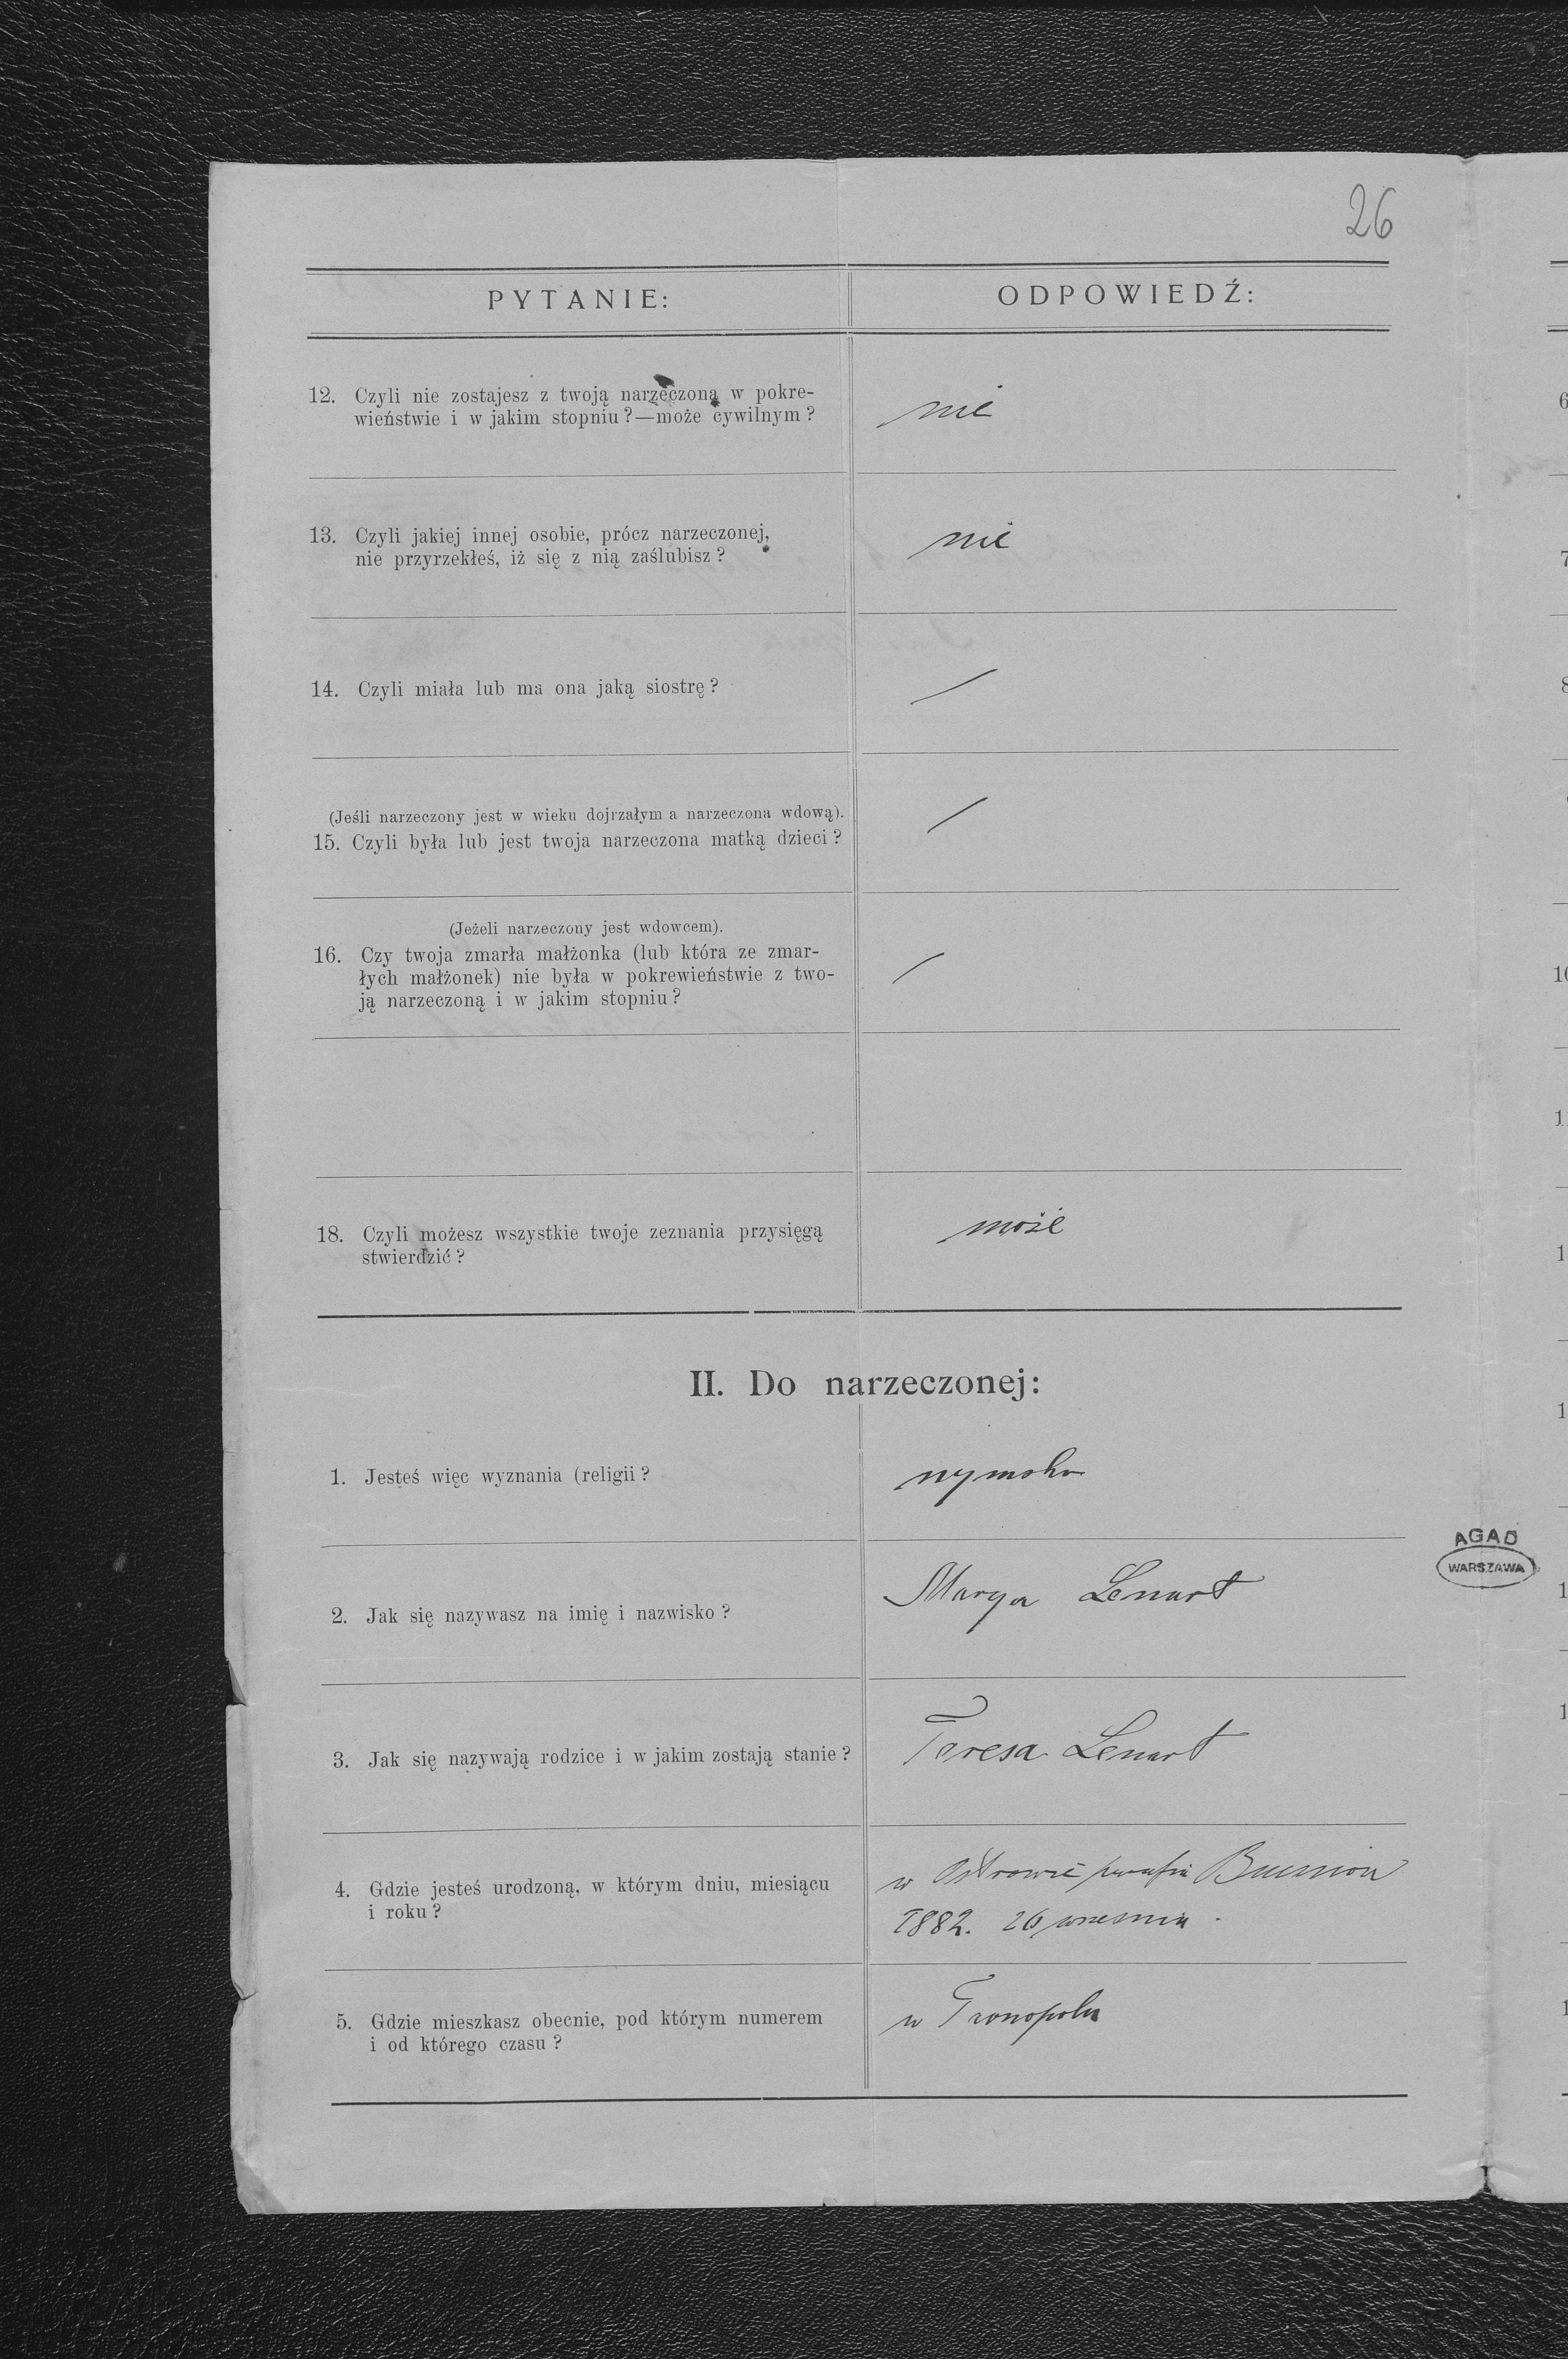 26
PYTANIE:
ODPOWIEDŹ:
12. Czyli nie zostajesz z twoją narzeczoną w pokre-
wieństwie i w jakim stopniu?—może cywilnym?
nie
13. Czyli jakiej innej osobie, prócz narzeczonej,
nie przyrzekłeś, iż się z nią zaślubisz?
nie
14. Czyli miała lub ma ona jaką siostrę?
(Jeśli narzeczony jest w wieku dojrzałym a narzeczona wdową).
15. Czyli była lub jest twoja narzeczona matką dzieci?
(Jeżeli narzeczony jest wdowcem).
16. Czy twoja zmarła małżonka (lub która ze zmar-
łych małżonek) nie była w pokrewieństwie z two-
ją narzeczoną i w jakim stopniu?
18. Czyli możesz wszystkie twoje zeznania przysięgą
stwierdzić?
może
II. Do narzeczonej:
1. Jesteś więc wyznania (religii?
rzymska
2. Jak się nazywasz na imię i nazwisko?
Marya Lenart
3. Jak się nazywają rodzice i w jakim zostają stanie?
Teresa Lenart
4. Gdzie jesteś urodzoną, w którym dniu, miesiącu
i roku?
w Ostrowie parafia
1882. 26 wrzesnia.
5. Gdzie mieszkasz obecnie, pod którym numerem
i od którego czasu?
w
AGAD
WARSZAWA